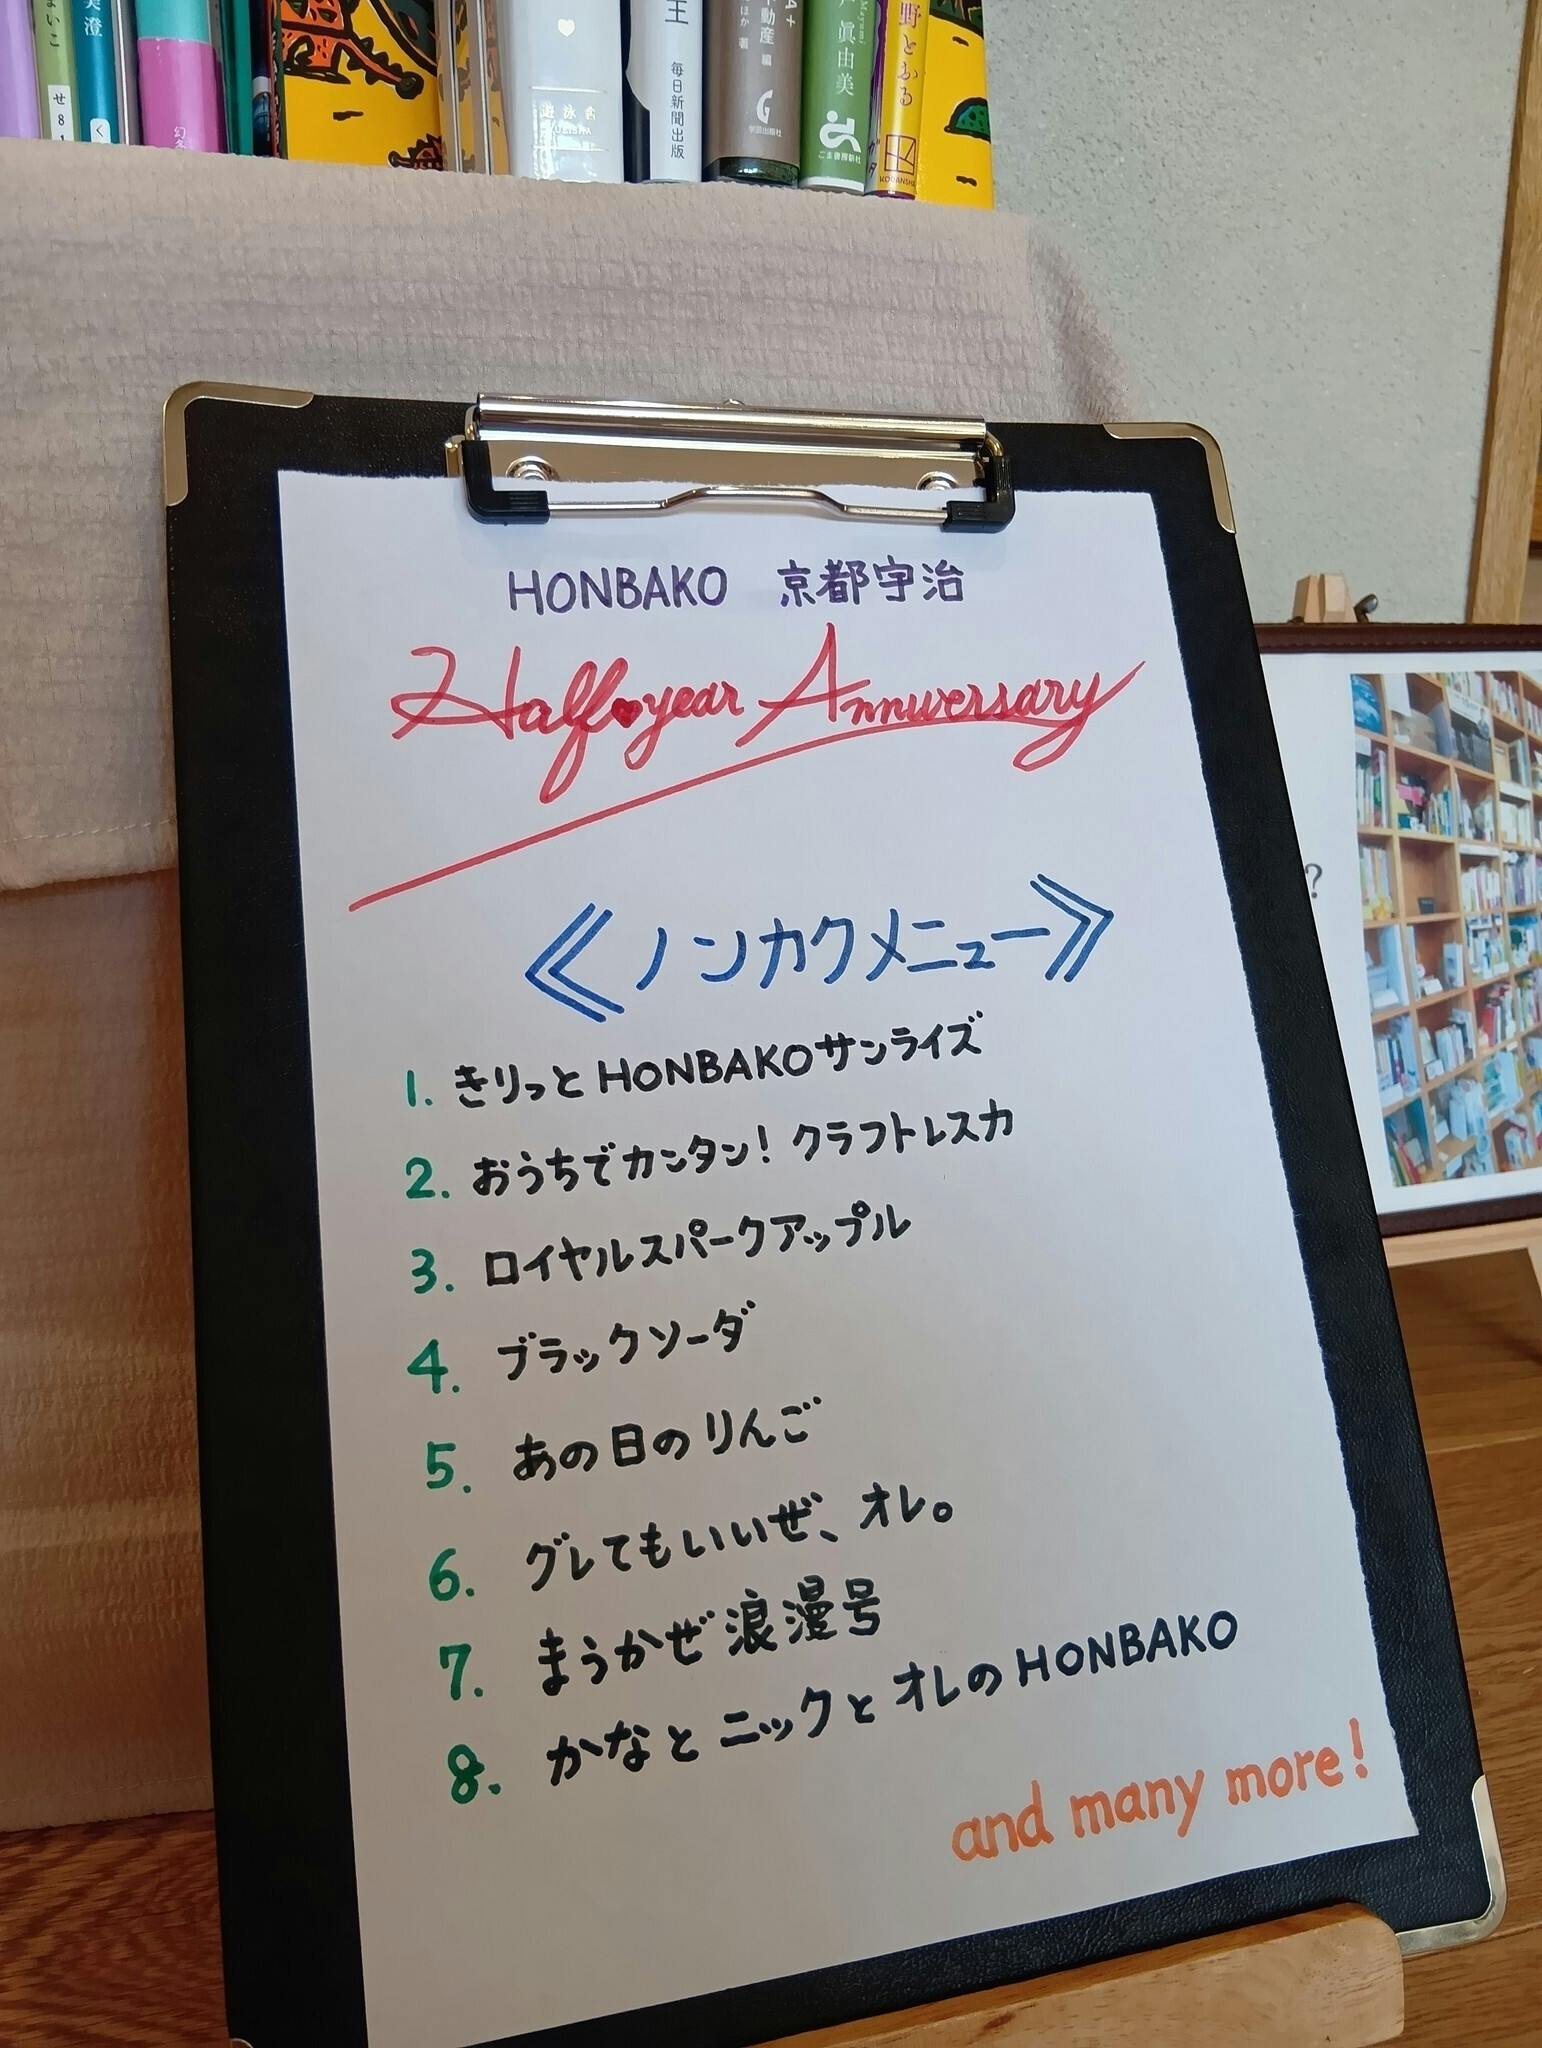 まいこ
せ81
美澄
く
幻冬
遊泳舎
YUEISHA
王
毎日新聞出版
A+
不動産 編
ほか 著
学芸出版社
Mayumi
戸 眞由美
ごま書房新社
野とおる
KODANSHA
HONBAKO 京都宇治
Half♥year Anniversary
《ノンカクメニュー》
1. きりっとHONBAKOサンライズ
2. おうちでカンタン! クラフトレスカ
3. ロイヤルスパークアップル
4. ブラックソーダ
5. あの日のりんご
6. グレてもいいぜ、オレ。
7. まうかぜ浪漫号
8. かなとニックとオレのHONBAKO
and many more!
?